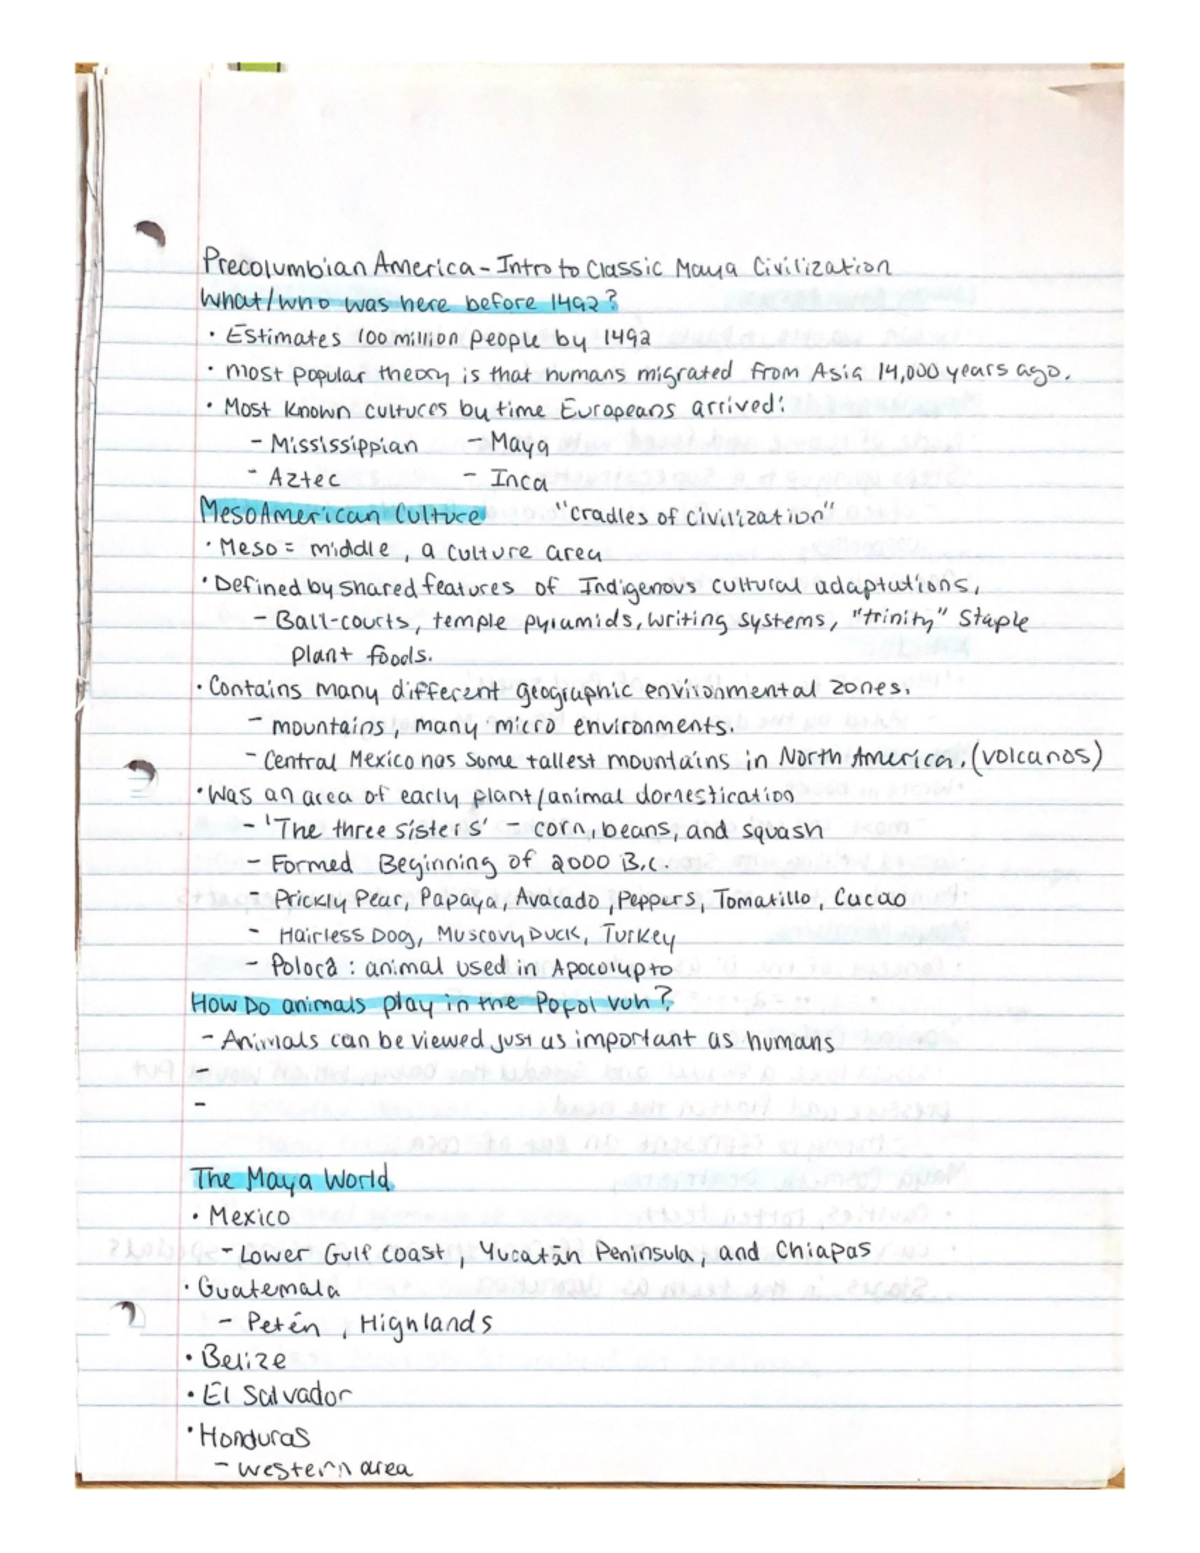 Precolumbian America - Intro to Classic Maya Civilization
What/who was here before 1492?
• Estimates 100 million people by 1492
• most popular theory is that humans migrated from Asia 14,000 years ago.
• Most known cultures by time Europeans arrived:
- Mississippian - Maya
- Aztec - Inca
MesoAmerican Culture "cradles of civilization"
• Meso = middle, a culture area
• Defined by shared features of Indigenous cultural adaptations,
- Ball-courts, temple pyramids, writing systems, "trinity" Staple
plant foods.
• Contains many different geographic environmental zones.
- mountains, many micro environments.
- Central Mexico has some tallest mountains in North America. (volcanos)
• Was an area of early plant/animal domestication
- 'The three sisters' - corn, beans, and squash
- Formed Beginning of 2000 B.C.
- Prickly Pear, Papaya, Avacado, Peppers, Tomatillo, Cacao
- Hairless Dog, Muscovy Duck, Turkey
- Polocā : animal used in Apocolypto
How Do animals play in the Popol vuh?
- Animals can be viewed just as important as humans
-
-
The Maya World
• Mexico
- Lower Gulf coast, Yucatān Peninsula, and Chiapas
• Guatemala
- Petén, Highlands
• Belize
• El Salvador
• Honduras
- western area